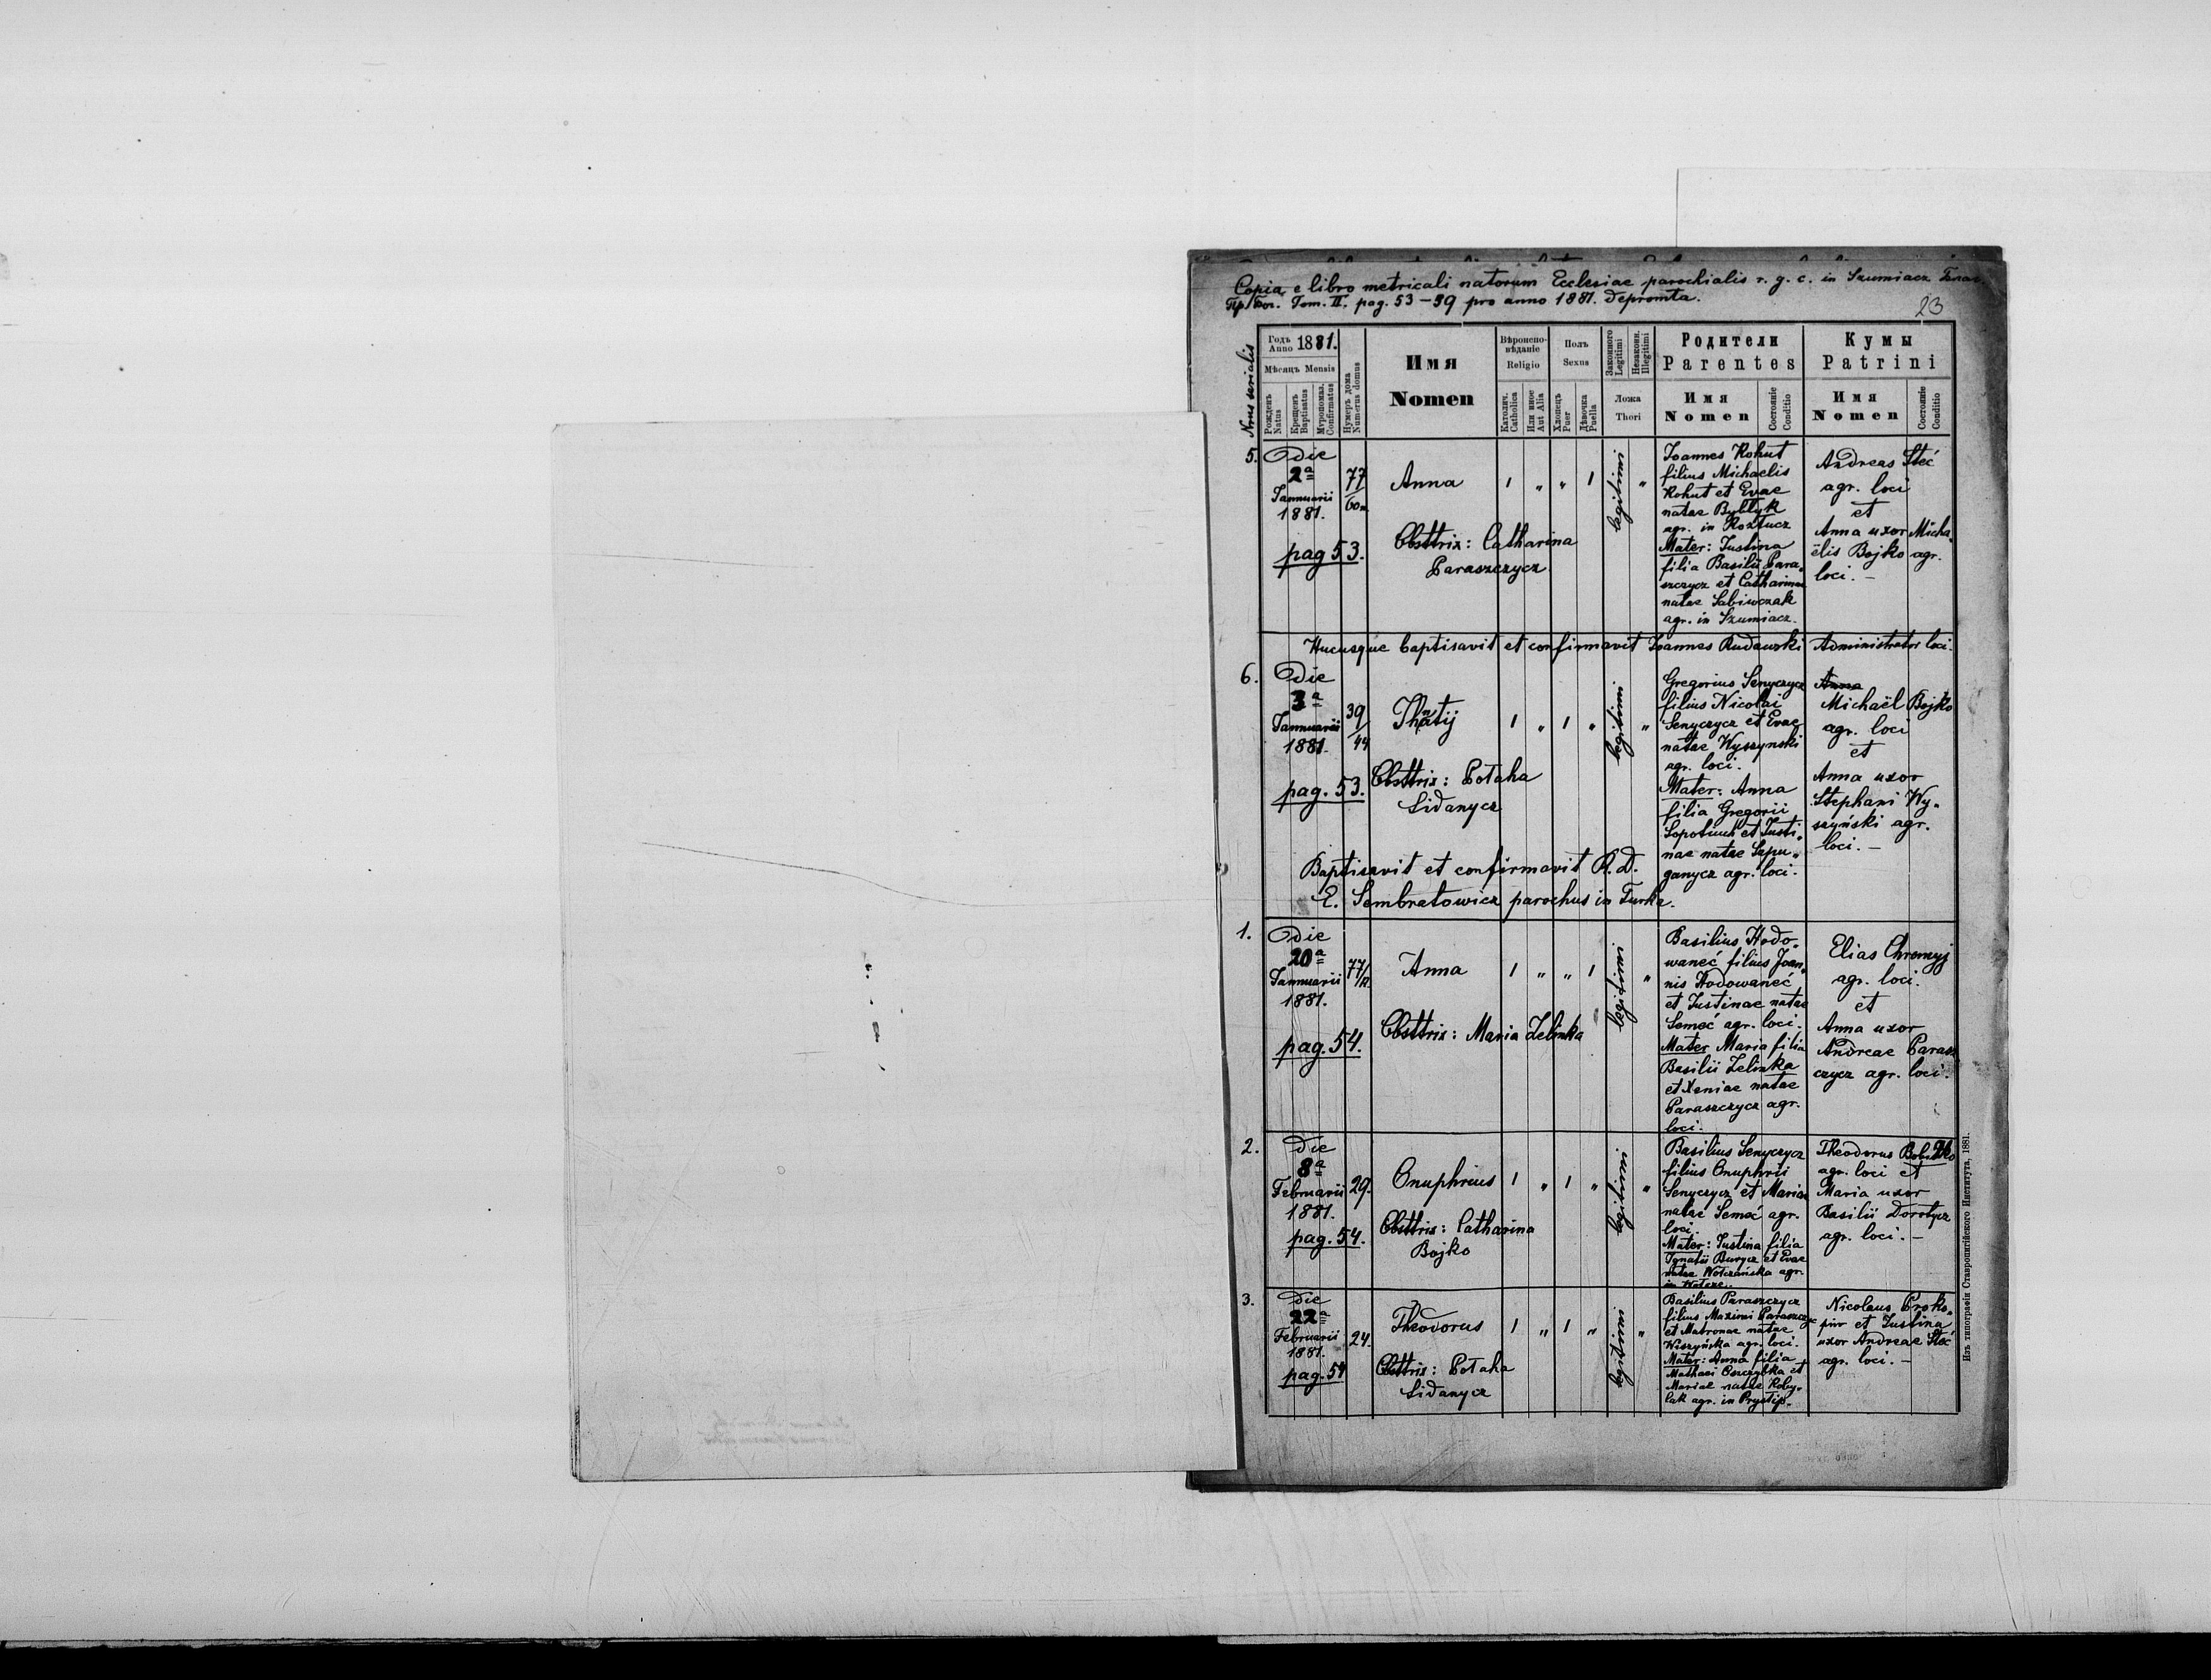 Copia e libro metricali natorum Ecclesiae parochialis r. g. c. in Szumiacz
Tom. II. pag. 53-59 pro anno 1881. depromta.
23
Nrus serialis
Годъ Anno 1881.
Мѣсяцъ Mensis
Рожденъ Natus
Крещенъ Baptisatus
Муропомаз. Confirmatus
Нумеръ дома Numerus domus
Имя
Nomen
Вѣроиспо-
вѣданіе
Religio
Католич. Catholica
Или иное Aut Alia
Полъ
Sexus
Хлопецъ Puer
Дѣвочка Puella
Законного Legitimi
Незаконн. Illegitimi
Ложа
Thori
Родители
Parentes
Имя
Nomen
Состояніе Conditio
Кумы
Patrini
Имя
Nomen
Состояніе Conditio
5.
Die
2a
Jannuarii
1881.
pag 53.
77
Anna
1 „ „ 1
legitimi „
Obsttrix: Catharina
Paraszczycz
Joannes Rohut
filius Michaelis
Rohut et Evae
natae Byblyk
agr. in Rozłucz
Mater: Justina
filia Basilii Para„
szczycz et Catharinae
natae Sabiwczak
agr. in Szumiacz.
Andreas Steć
agr. loci
et
Anna uxor Micha„
ëlis Bojko agr.
loci. -
Hucusque baptisavit et confirmavit Joannes Rudawski Administrator loci.
6.
Die
3a
Jannuarii
1881.
pag. 53.
39
44
1 „ 1 „
legitimi „
Obsttrix: Potaha
Lidanycz
Gregorius Senyczycz
filius Nicolai
Senyczycz et Evae
natae Wyszynski
agr. loci.
Mater: Anna
filia Gregorii
et Justi„
nae natae Sapu„
ganycz agr. loci.
Michaël Bojko
agr. loci
et
Anna uxor
Stephani Wy„
szyński agr.
loci. -
Baptisavit et confirmavit R. D.
E. Sembratowicz parochus in Turka.
1.
Die
20a
Jannuarii
1881.
pag. 54.
77/
Anna
1 „ „ 1
legitimi „
Obsttrix: Maria Zelinka
Basilius Hodo„
waneć filius Joan„
nis Hodowaneć
et Justinae natae
Semeć agr. loci.
Mater Maria filia
Basilii Zelinka
et Xeniae natae
Paraszczycz agr.
loci.
Elias Chromyj
agr. loci.
et
Anna uxor
Andreae Parasz
czycz agr. loci.
2.
Die
8a
Februarii
1881.
pag. 54.
29.
Onuphrius
1 „ 1 „
legitimi „
Obsttrix: Catharina
Bojko
Basilius Senyczycz
filius Onuphrii
Senyczycz et Mariae
natae Semeć agr.
loci.
Mater: Justina filia
Ignatii Burycz et Evae
natae Wołczańska agr.
in Wołcze.
Theodorus
agr. loci et
Maria uxor
Basilii Dorotycz
agr. loci. -
3.
Die
22a
Februarii
1881.
pag. 54
24.
Theodorus
1 „ 1 „
legitimi „
Obsttrix: Potaha
Lidanycz
Basilius Paraszczycz
filius Maximi Paraszczycz
et Matronae natae
Wiszyńska agr. loci.
Mater: Anna filia
Mathaei Oszczybka et
Mariae natae Koby„
lak agr. in Prystip.
Nicolaus Proko„
piw et Justina
uxor Andreae Steć
agr. loci. -
Изъ типографіи Ставропигійского Института, 1881.